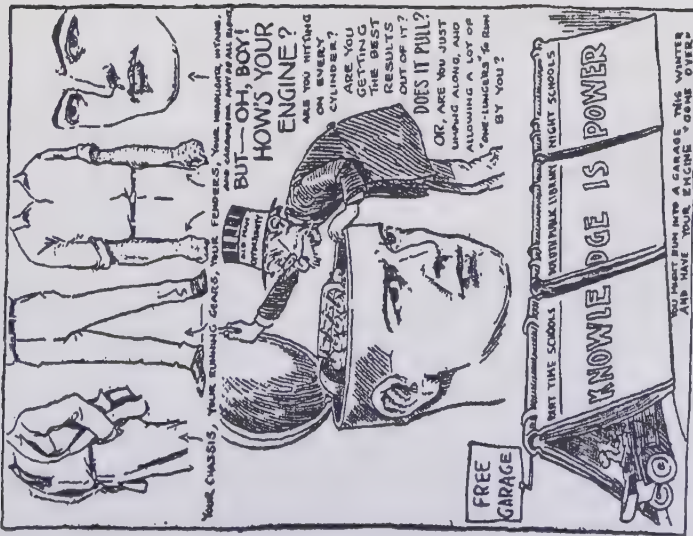 YOUR CHASSIS, YOUR RUNNING GEARS, YOUR FENDERS, YOUR HEADLIGHTS, INTAKE,
MAY BE ALL RIGHT,
BUT — OH, BOY!
HOW'S YOUR
ENGINE?
ARE YOU HITTING
ON EVERY
CYLINDER?
ARE YOU
GETTING
THE BEST
RESULTS
OUT OF IT?
DOES IT PULL?
OR, ARE YOU JUST
LIMPING ALONG, AND
ALLOWING A LOT OF
"ONE-LUNGERS" TO RUN
BY YOU?
OLD MAN
FREE
GARAGE
PART TIME SCHOOLS
LIBRARY
NIGHT SCHOOLS
KNOWLEDGE IS POWER
YOU MIGHT RUN INTO A GARAGE THIS WINTER
AND HAVE YOUR "ENGINE" GONE OVER?